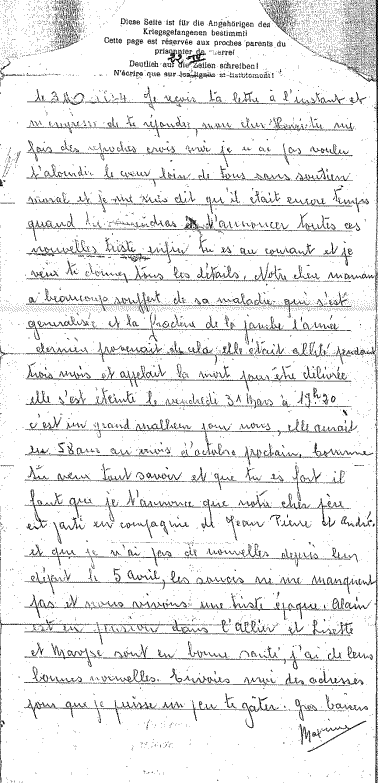 Diese Seite ist für die Angehörigen des
Kriegsgefangenen bestimmt!
Cette page est réservée aux proches parents du
prisonnier de guerre!
Deutlich auf die Zeilen schreiben!
N'écrire que sur les lignes et lisiblement!
Je reçois ta lettre à l'instant et
m'empresse de te répondre, mon cher tu me
fais des reproches crois moi je n'ai pas voulu
t'alourdir le cœur, loin de tous sans soutien
moral et je me suis dit qu'il était encore temps
quand tu reviendras t'annoncer toutes ces
nouvelles triste enfin tu es au courant et je
veux te donner tous les détails. Notre chère maman
a beaucoup souffert de sa maladie qui s'est
generalisée et la fracture de la jambe l'année
dernière provenait de cela, elle était allitée pendant
trois mois et appelait la mort pour être délivrée
elle s'est éteinte le vendredi 31 Mars à 19h30
c'est un grand malheur pour nous, elle aurait
eu 58 ans au mois d'octobre prochain. Comme
tu veux tout savoir et que tu es fort il
faut que je t'annonce que notre cher père
est parti en compagnie de Jean Pierre et André.
et que je n'ai pas de nouvelles depuis leur
départ le 5 Avril, les soucis ne me manquent
pas et nous vivons une triste époque. Alain
est en pension dans l'allier et Lisette
et Maryse sont en bonne santé, j'ai de leurs
bonnes nouvelles. Envoies moi des adresses
pour que je puisse un peu te gâter. gros baisers